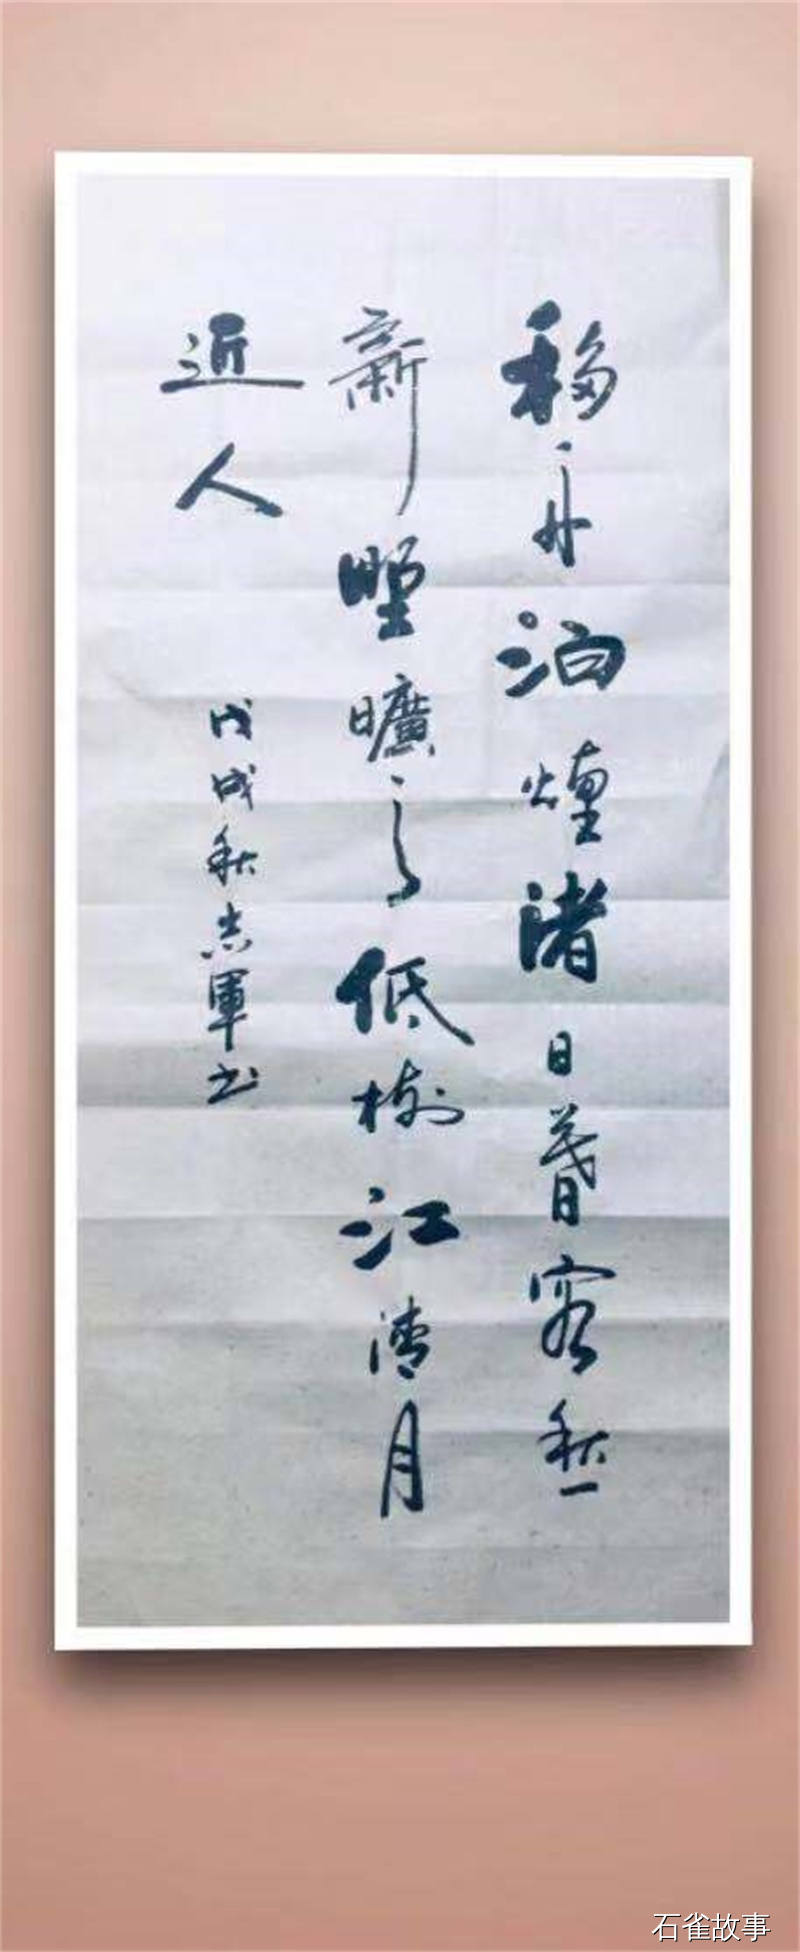 移舟泊煙渚日暮客愁
新野曠天低樹江清月
近人
戊戌秋志軍书
石雀故事